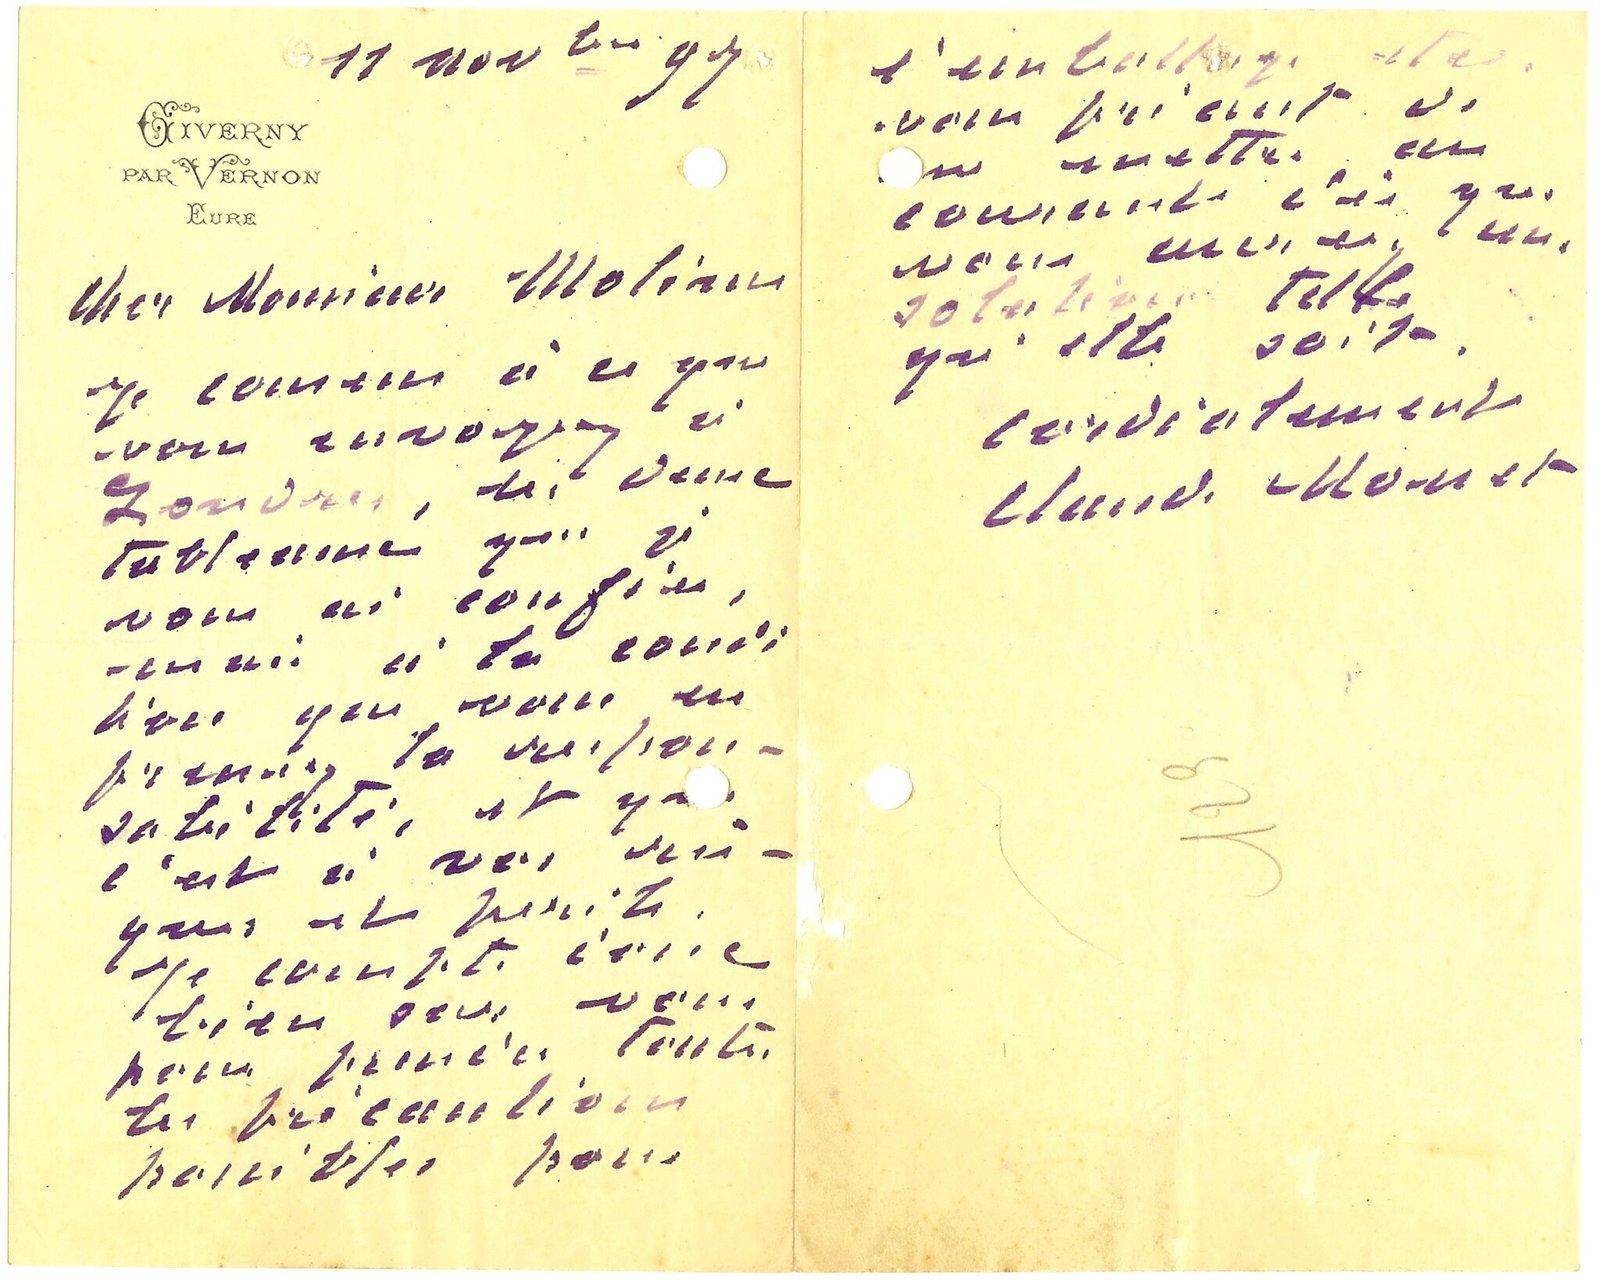 11 novbre 97
GIVERNY
PAR VERNON
EURE
Cher Monsieur Moline
Je consens à ce que
vous envoyez à
Londres, les deux
tableaux que je
vous ai confiés,
mais à la condi
tion que vous en
prenez la respon-
sabilité, et que
c'est à vos ris-
ques et perils.
Je compte donc
bien sur vous
pour prendre toutes
les précautions
possibles pour
l'emballage etc.
vous priant de
me mettre au
courant dès que
vous aurez une
solution telle
qu'elle soit.
cordialement
Claude Monet